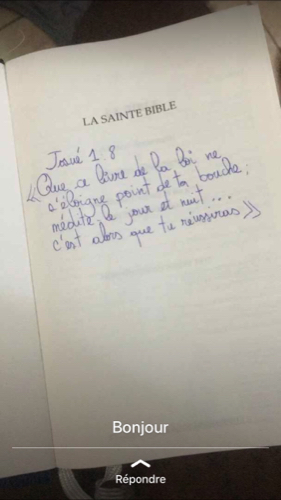 LA SAINTE BIBLE
Josué 1.8
«Que ce livre de la loi ne
s'éloigne point de ta bouche;
médite-le jour et nuit...
c'est alors que tu réussiras»
Bonjour
Répondre